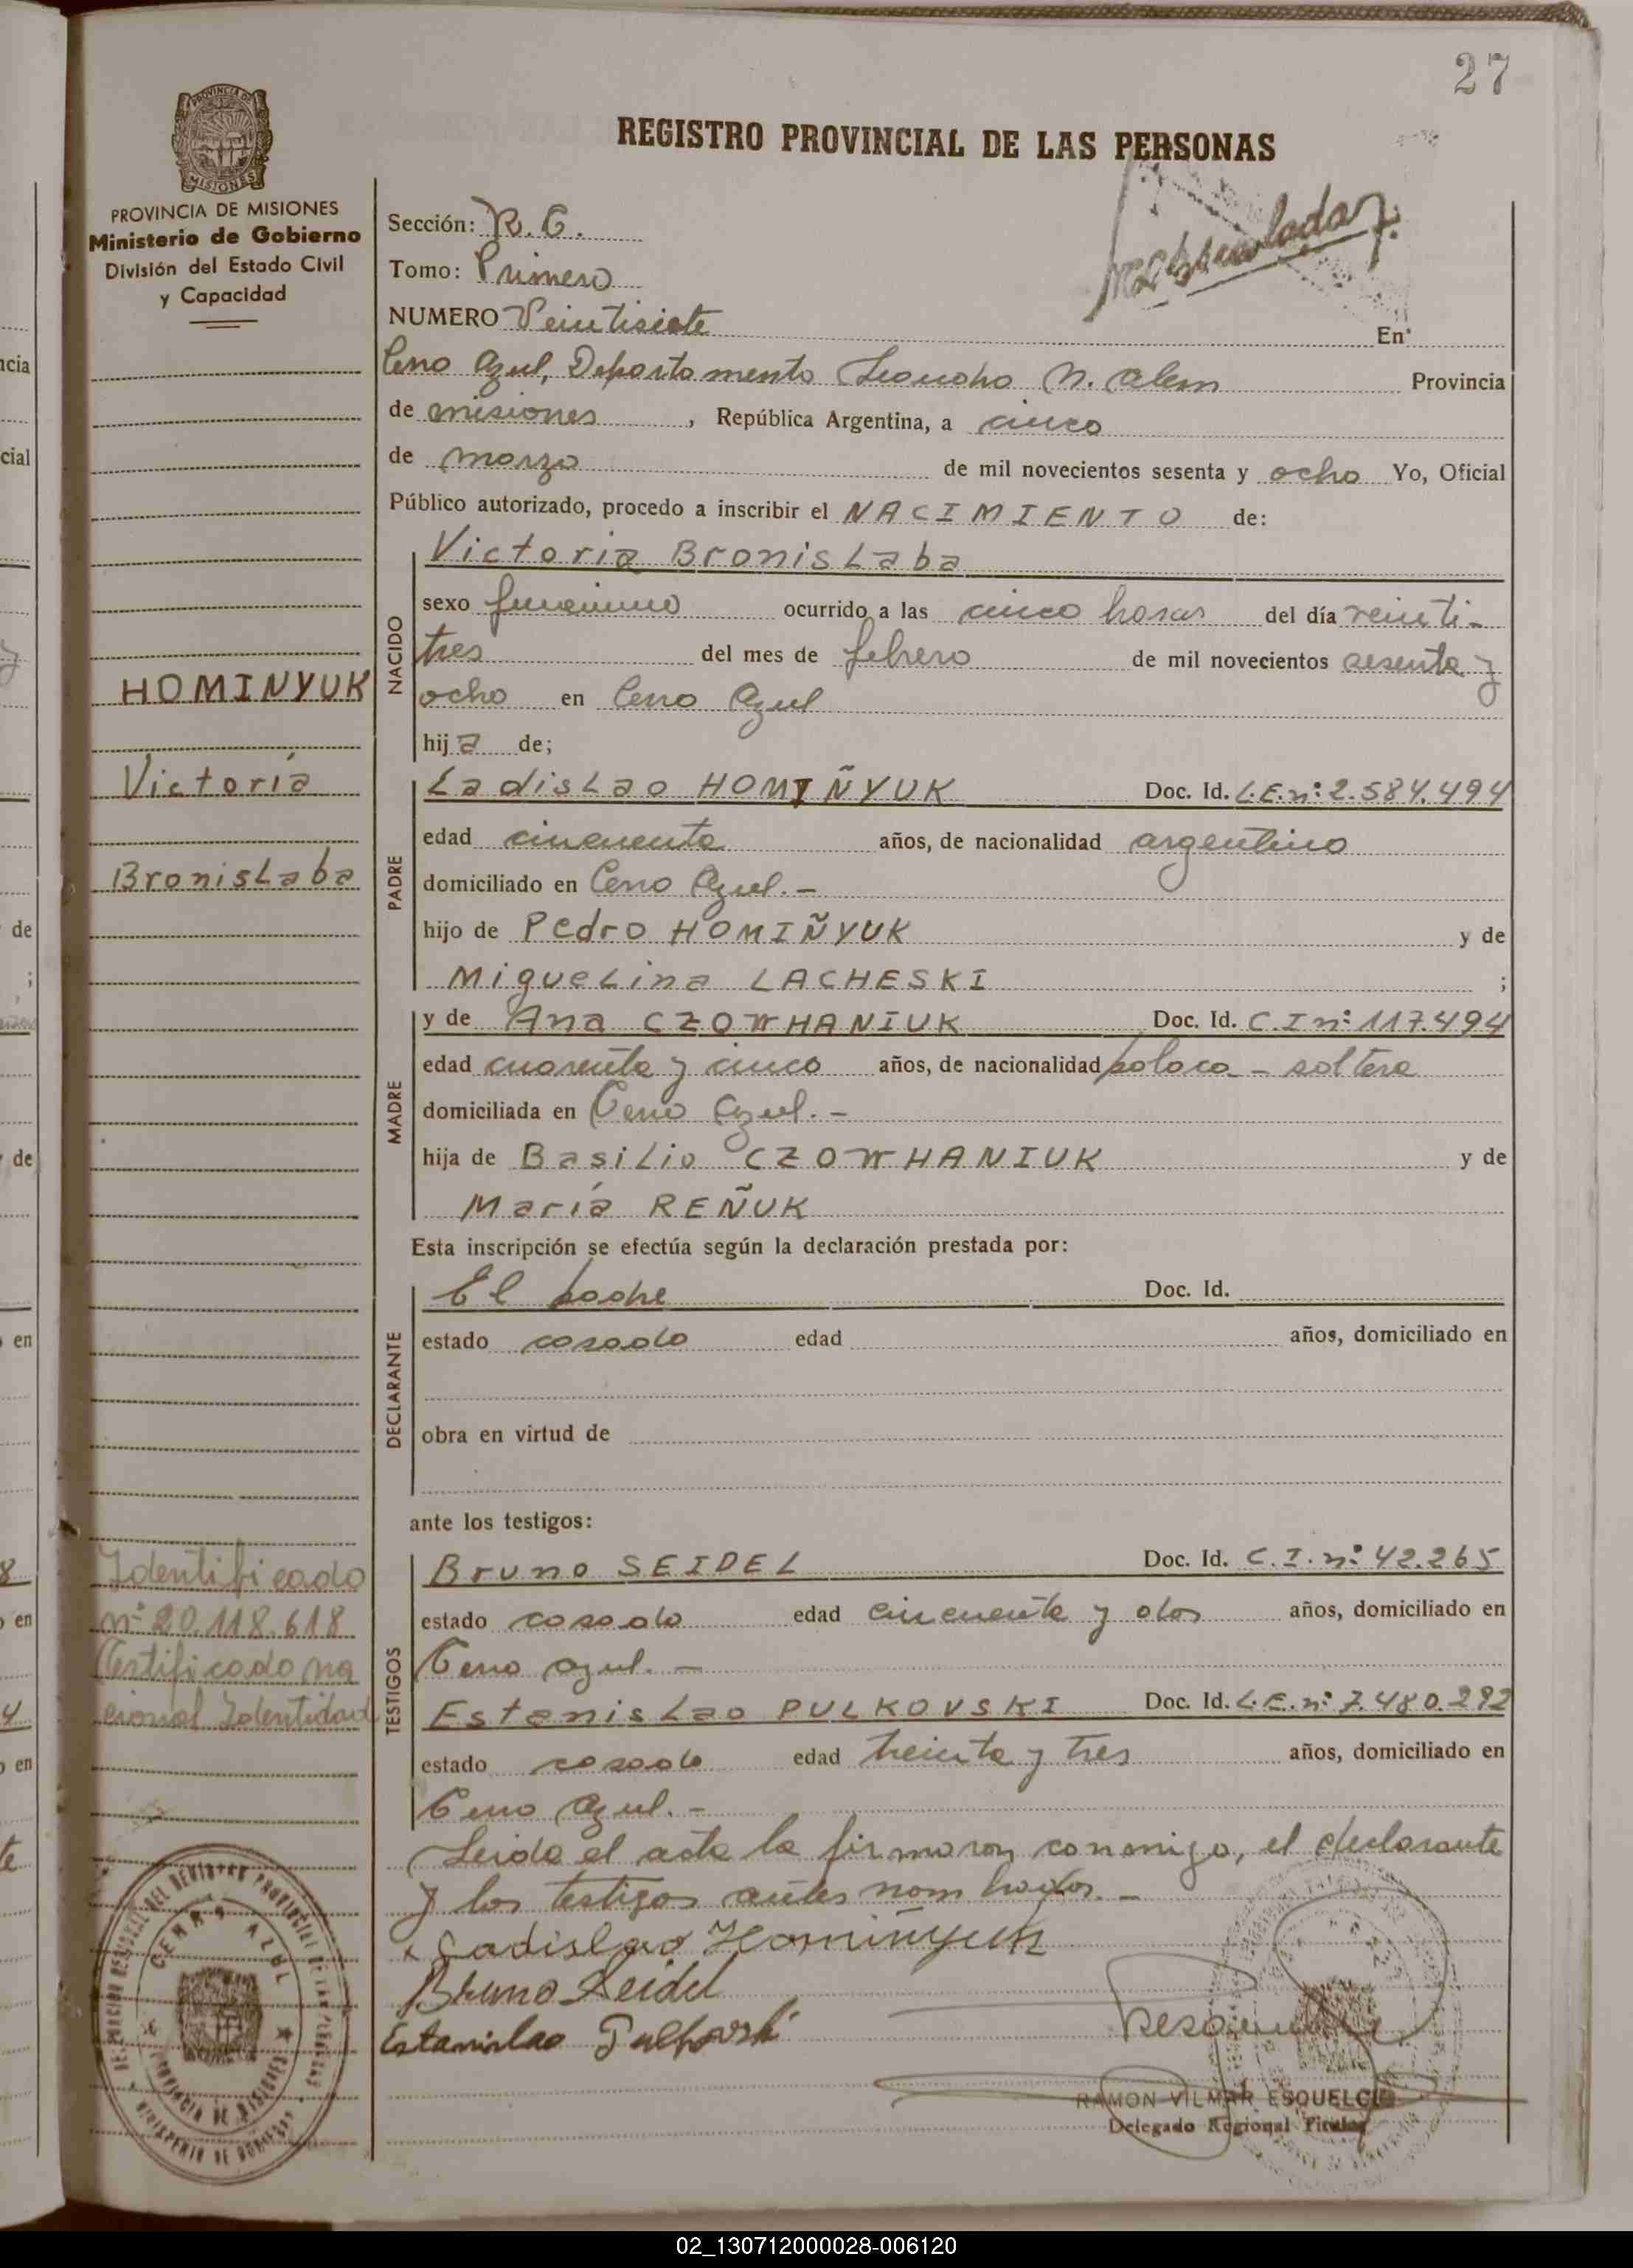 27
REGISTRO PROVINCIAL DE LAS PERSONAS
PROVINCIA DE MISIONES
Ministerio de Gobierno
División del Estado Civil
y Capacidad
Sección: R. C.
Tomo: Primero
NUMERO Veintisiete En
Cerro Azul, Departamento Leandro N. Alem Provincia
de misiones , República Argentina, a cinco
de marzo de mil novecientos sesenta y ocho Yo, Oficial
Público autorizado, procedo a inscribir el NACIMIENTO de:
Victoria BronisLaba
NACIDO
sexo femenino ocurrido a las cinco horas del día veinti-
tres del mes de febrero de mil novecientos sesenta y
ocho en Cerro Azul
hija de;
HOMINYUK
Victoría
BronisLaba
PADRE
LadisLao HOMIÑYUK Doc. Id. L.E.nº 2.584.494
edad cincuenta años, de nacionalidad argentino
domiciliado en Cerro Azul. -
hijo de Pedro HOMIÑYUK y de
MigueLina LACHESKI ;
MADRE
y de Ana CZOWHANIUK Doc. Id. C.I nº 117.494
edad cuarenta y cinco años, de nacionalidad polaca - soltera
domiciliada en Cerro Azul. -
hija de BasiLio CZOWHANIUK y de
María REÑUK
Esta inscripción se efectúa según la declaración prestada por:
DECLARANTE
El padre Doc. Id.
estado casado edad años, domiciliado en
obra en virtud de
ante los testigos:
TESTIGOS
Bruno SEIDEL Doc. Id. C.I.nº 42.265
estado casado edad cincuenta y dos años, domiciliado en
Cerro azul. -
EstanisLao PULKOVSKI Doc. Id. L.E.nº 7.480.292
estado casado edad treinta y tres años, domiciliado en
Cerro Azul. -
Identificado
nº 20.118.618
Certificado na
cional Identidad
Leida el acta la firmaron conmigo, el declarante
y los testigos antes nombrados. -
x Ladislao Homiñyuk
Bruno Seidel
Estanislao Pulkovski
CERRO AZUL
PROVINCIA DE MISIONES
RAMON VILMAR ESQUELCIE
Delegado Regional Titular
ncia
cial
de
;
de
en
en
en
02_130712000028-006120